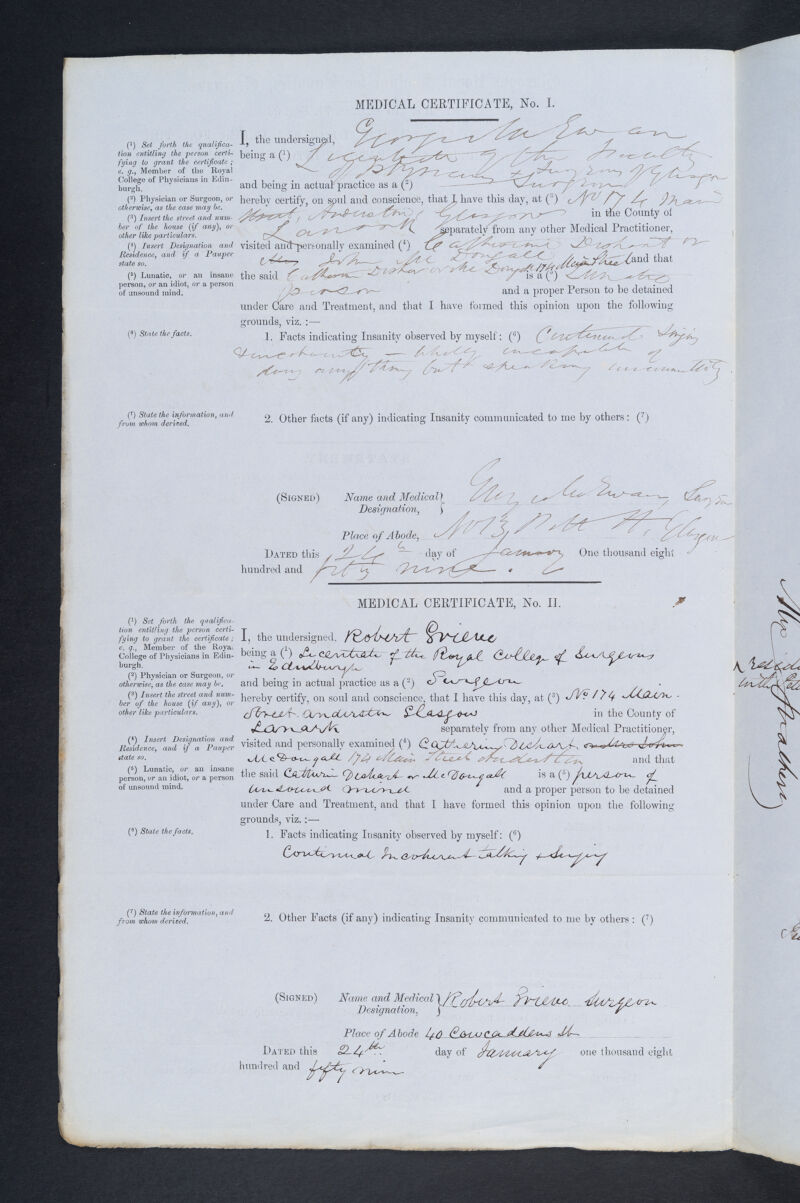 MEDICAL CERTIFICATE, No. I.
(¹) Set forth the qualifica-
tion entitling the person certi-
fying to grant the certificate;
e. g., Member of the Royal
College of Physicians in Edin-
burgh.
(²) Physician or Surgeon, or
otherwise, as the case may be.
(³) Insert the street and num-
ber of the house (if any), or
other like particulars.
(⁴) Insert Designation and
Residence, and if a Pauper
state so.
(⁵) Lunatic, or an insane
person, or an idiot, or a person
of unsound mind.
I, the undersigned, George McEwan
being a (¹) Licentiate of the Faculty
of Physicians & Surgeons of Glasgow
and being in actual practice as a (²) Surgeon
hereby certify, on soul and conscience, that I have this day, at (³) No 174 Main
Street, Anderston, Glasgow in the County of
Lanark separately from any other Medical Practitioner,
visited and personally examined (⁴) Catherine Dishart or
John McDougall 174 Main Street and that
the said Catherine Dishart or McDougall is a (⁵)
person and a proper Person to be detained
under Care and Treatment, and that I have formed this opinion upon the following
grounds, viz. :—
(⁶) State the facts.
1. Facts indicating Insanity observed by myself: (⁶) Continued Singing
& incoherency – wholly incapable of
doing anything but speaking
(⁷) State the information, and
from whom derived.
2. Other facts (if any) indicating Insanity communicated to me by others: (⁷)
(SIGNED) Name and Medical Designation, George McEwan, Surgeon
Place of Abode, No 13 Pitt St. Glasgow
DATED this 24th day of January One thousand eight
hundred and fifty nine.
MEDICAL CERTIFICATE, No. II.
(¹) Set forth the qualifica-
tion entitling the person certi-
fying to grant the certificate;
e. g., Member of the Roya.
College of Physicians in Edin-
burgh.
(²) Physician or Surgeon, or
otherwise, as the case may be.
(³) Insert the street and num-
ber of the house (if any), or
other like particulars.
(⁴) Insert Designation and
Residence, and if a Pauper
state so.
(⁵) Lunatic, or an insane
person, or an idiot, or a person
of unsound mind.
I, the undersigned, Robert Grieve
being a (¹) Licentiate of the Royal College of Surgeons
in Edinburgh
and being in actual practice as a (²) Surgeon
hereby certify, on soul and conscience, that I have this day, at (³) No 174 Main
Street Anderston Glasgow in the County of
Lanark separately from any other Medical Practitioner,
visited and personally examined (⁴) Catherine Dishart or Mrs John
McDougall 174 Main Street Anderston and that
the said Catherine Dishart or McDougall is a (⁵) person of
unsound mind and a proper person to be detained
under Care and Treatment, and that I have formed this opinion upon the following
grounds, viz. :—
(⁶) State the facts.
1. Facts indicating Insanity observed by myself: (⁶)
Continual Incoherent talking & Singing
(⁷) State the information, and
from whom derived.
2. Other Facts (if any) indicating Insanity communicated to me by others: (⁷)
(SIGNED) Name and Medical Designation, Robert Grieve Surgeon
Place of Abode 40 Cowcaddens St
DATED this 24th day of January one thousand eight
hundred and fifty nine